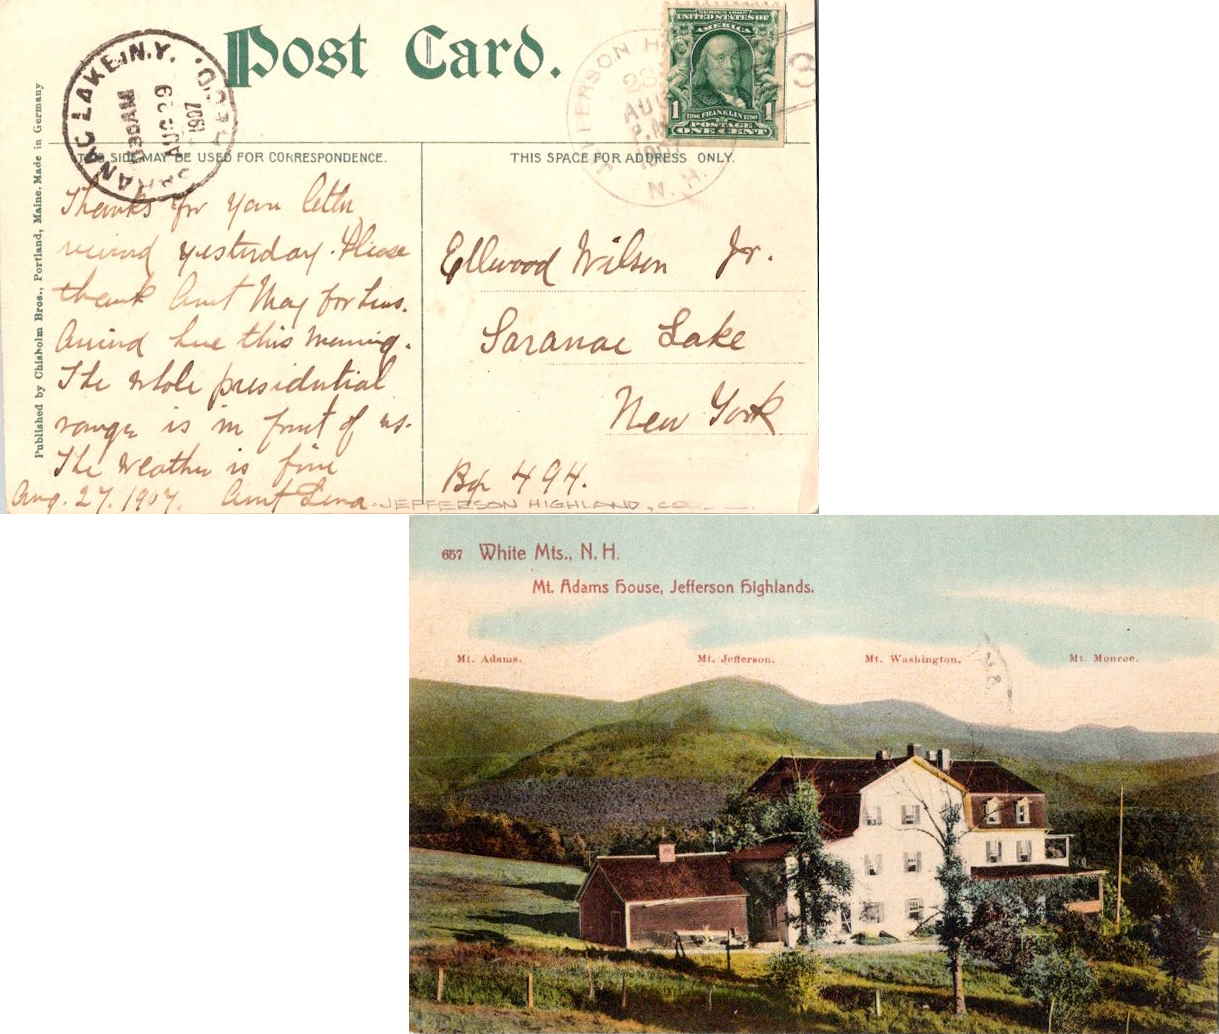 Post Card.
SARANAC LAKE, N.Y.
AUG 29
1907
JEFFERSON H
28
AUG
P.M
1907
N. H.
UNITED STATES OF
AMERICA
1 FRANKLIN 1
POSTAGE
ONE CENT
THIS SIDE MAY BE USED FOR CORRESPONDENCE.
THIS SPACE FOR ADDRESS ONLY.
Published by Chisholm Bros., Portland, Maine. Made in Germany
Thanks for your letter
received yesterday. Please
thank Aunt May for hers.
Arrived here this morning.
The whole presidential
range is in front of us.
The weather is fine
Aug. 27. 1907. Aunt Lena
Ellwood Wilson Jr.
Saranac Lake
New York
Box 494.
JEFFERSON HIGHLAND, CO
657 White Mts., N. H.
Mt. Adams House, Jefferson Highlands.
Mt. Adams. Mt. Jefferson. Mt. Washington. Mt. Monroe.